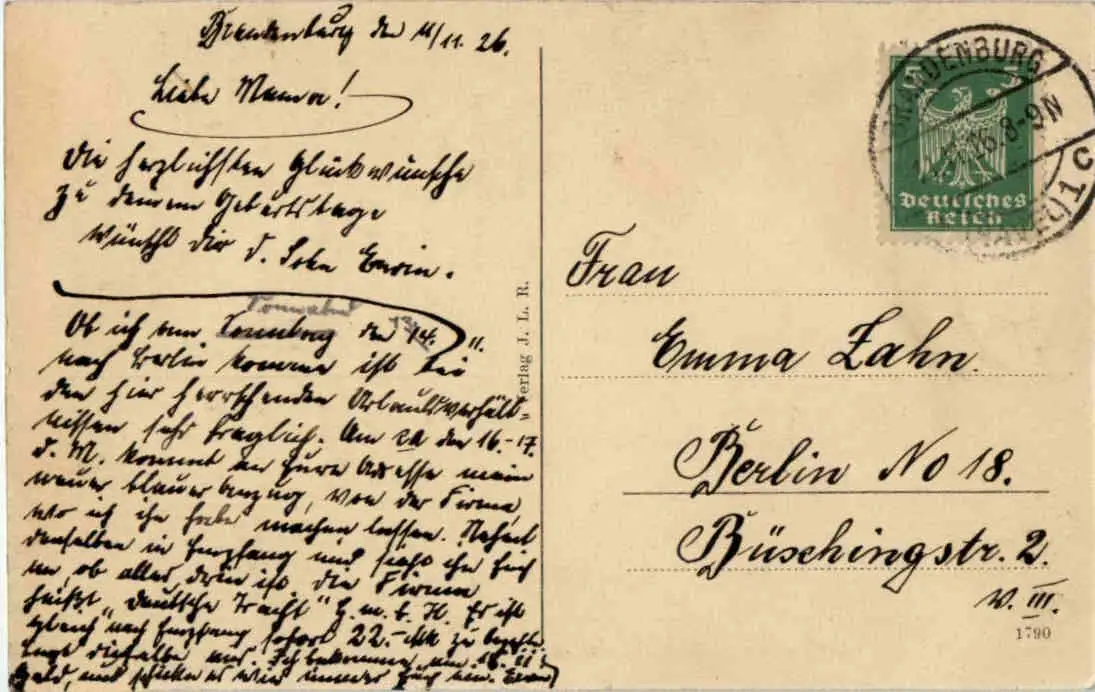 Brandenburg den 11/11. 26.
Liebe Mama!
Die herzlichsten Glückwünsche
zu deinem Geburtstage
wünscht Dir d. Sohn Erwin.
Sonnabend
Ob ich am Sonntag den 13. 14. 11.
nach Berlin komme ist bei
den hier herrschenden Urlaubsverhält-
nissen sehr fraglich. Am den 16.-17.
d. M. kommt an Eure Adresse mein
neuer blauer Anzug, von der Firma,
wo ich ihn habe machen lassen. Nehmt
denselben in Empfang und seht ihn Euch
an, ob alles drin ist. Die Firma
heißt "Deutsche Tracht" G.m.b.H. Es ist
gleich nach Empfang sofort 22.- Mk zu bezahlen
legt dieselben aus. Ich bekomme am 16.11.
Geld, und schicke es wie immer Euch an. Erwin
Verlag J. L. R.
BRANDENBURG
11.11.26. 8-9N
(HAVEL) 1 c
5
Deutsches
Reich
Frau
Emma Zahn.
Berlin No 18.
Büschingstr. 2.
v. III.
1790